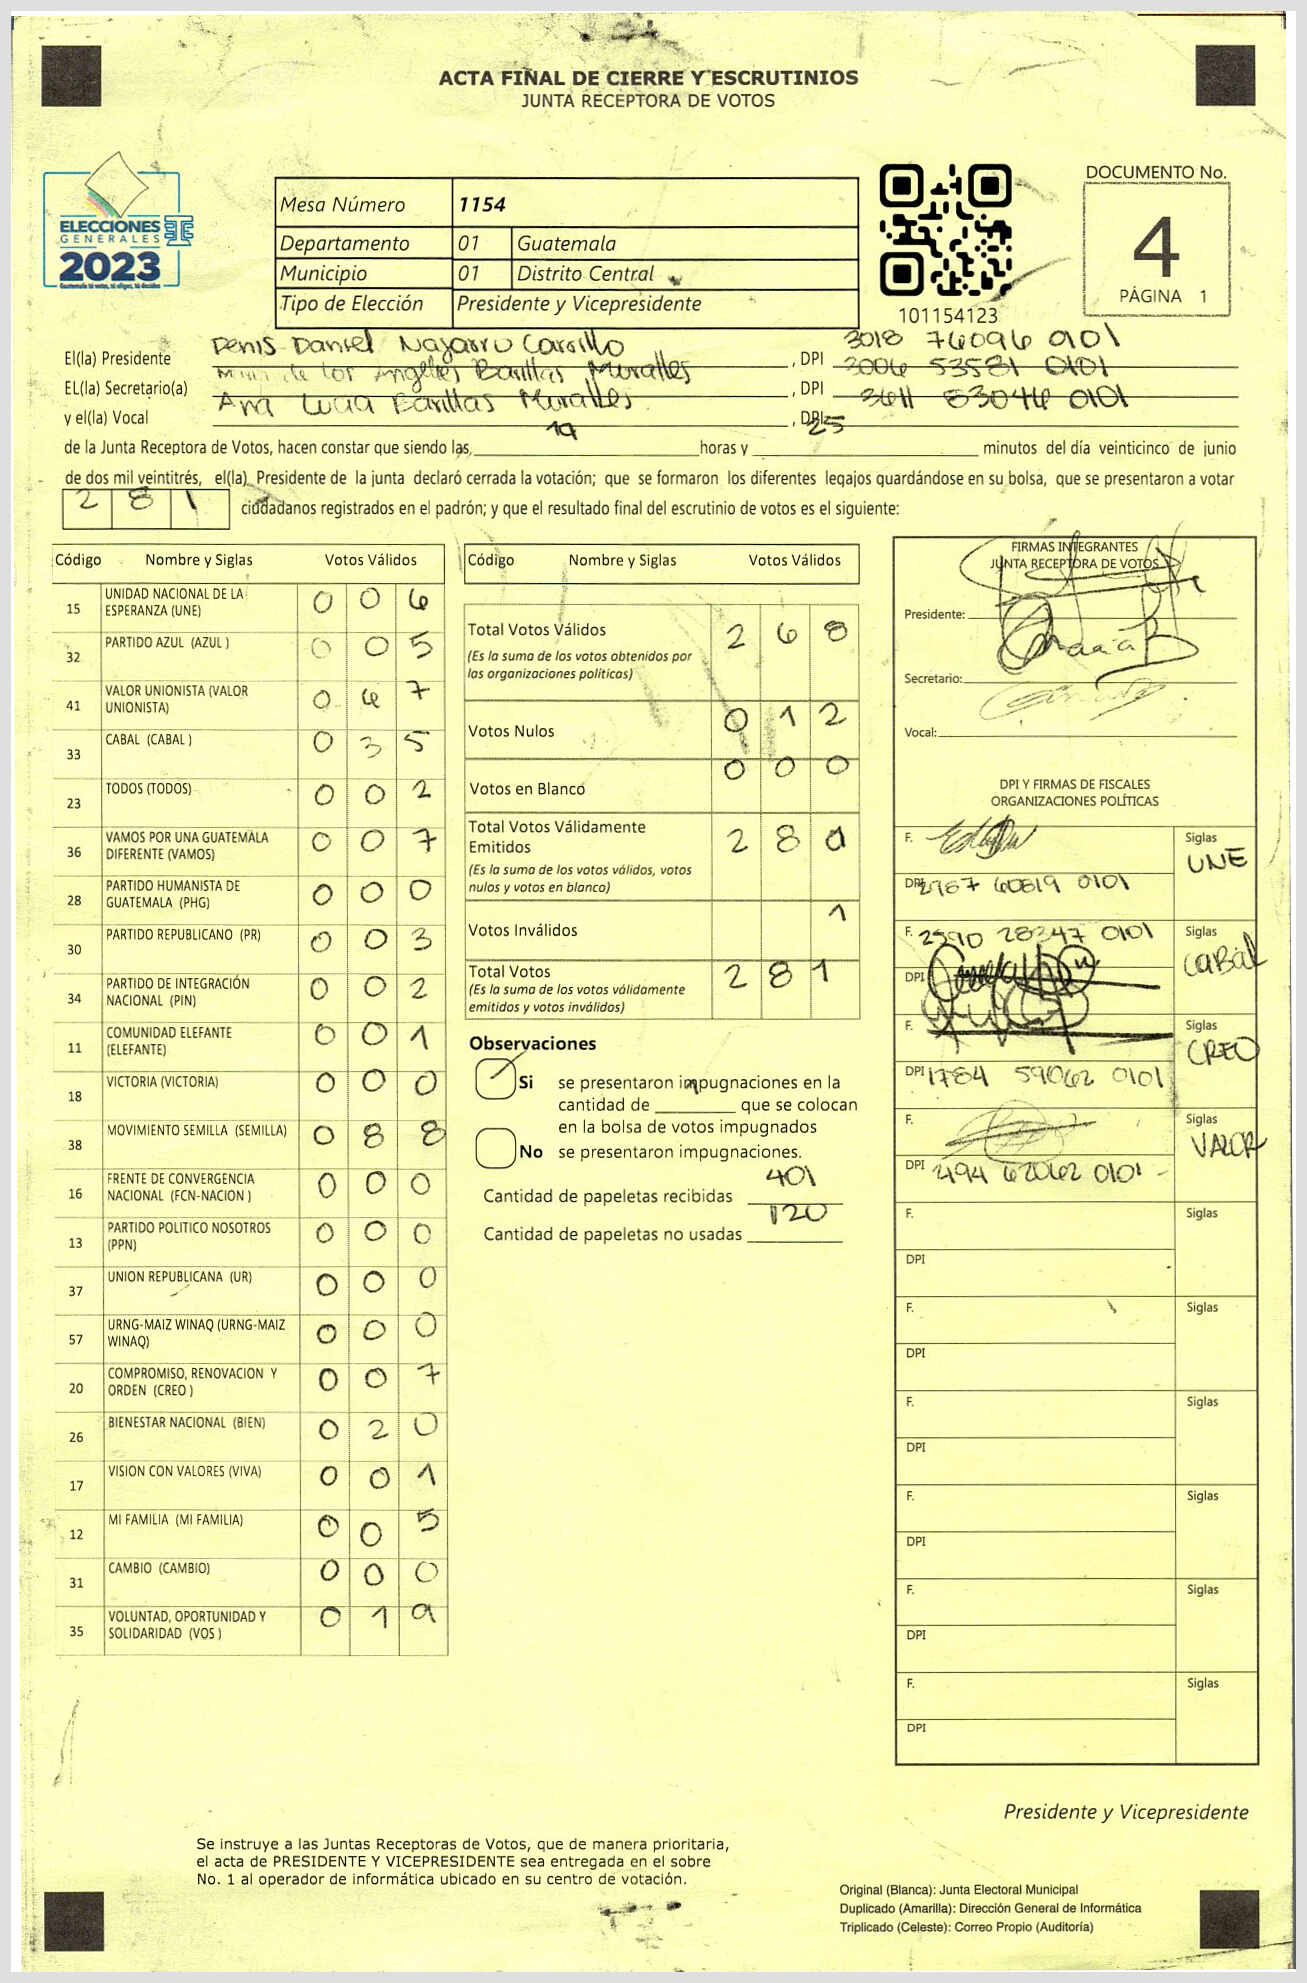 ACTA FINAL DE CIERRE Y ESCRUTINIOS
JUNTA RECEPTORA DE VOTOS
ELECCIONES
GENERALES
2023
Guatemala tú votas, tú eliges, tú decides
Mesa Número 1154
Departamento 01 Guatemala
Municipio 01 Distrito Central
Tipo de Elección Presidente y Vicepresidente
101154123
DOCUMENTO No.
4
PÁGINA 1
El(la) Presidente Denis Daniel Najarro Carrillo, DPI 3018 76096 0101
EL(la) Secretario(a) de los Angeles Barillas Muralles, DPI 3006 53581 0101
y el(la) Vocal Ana Lucia Barillas Muralles, DPI 3611 53046 0101
de la Junta Receptora de Votos, hacen constar que siendo las, 19 horas y 25 minutos del día veinticinco de junio
de dos mil veintitrés, el(la) Presidente de la junta declaró cerrada la votación; que se formaron los diferentes legajos guardándose en su bolsa, que se presentaron a votar
2 8 1 ciudadanos registrados en el padrón; y que el resultado final del escrutinio de votos es el siguiente:
Código Nombre y Siglas Votos Válidos
15 UNIDAD NACIONAL DE LA ESPERANZA (UNE) 0 0 6
32 PARTIDO AZUL (AZUL ) 0 0 5
41 VALOR UNIONISTA (VALOR UNIONISTA) 0 4 7
33 CABAL (CABAL ) 0 3 5
23 TODOS (TODOS) 0 0 2
36 VAMOS POR UNA GUATEMALA DIFERENTE (VAMOS) 0 0 7
28 PARTIDO HUMANISTA DE GUATEMALA (PHG) 0 0 0
30 PARTIDO REPUBLICANO (PR) 0 0 3
34 PARTIDO DE INTEGRACIÓN NACIONAL (PIN) 0 0 2
11 COMUNIDAD ELEFANTE (ELEFANTE) 0 0 1
18 VICTORIA (VICTORIA) 0 0 0
38 MOVIMIENTO SEMILLA (SEMILLA) 0 8 8
16 FRENTE DE CONVERGENCIA NACIONAL (FCN-NACION ) 0 0 0
13 PARTIDO POLITICO NOSOTROS (PPN) 0 0 0
37 UNION REPUBLICANA (UR) 0 0 0
57 URNG-MAIZ WINAQ (URNG-MAIZ WINAQ) 0 0 0
20 COMPROMISO, RENOVACION Y ORDEN (CREO ) 0 0 7
26 BIENESTAR NACIONAL (BIEN) 0 2 0
17 VISION CON VALORES (VIVA) 0 0 1
12 MI FAMILIA (MI FAMILIA) 0 0 5
31 CAMBIO (CAMBIO) 0 0 0
35 VOLUNTAD, OPORTUNIDAD Y SOLIDARIDAD (VOS ) 0 1 9
Código Nombre y Siglas Votos Válidos
Total Votos Válidos 2 6 8
(Es la suma de los votos obtenidos por
las organizaciones políticas)
Votos Nulos 0 1 2
Votos en Blanco 0 0 0
Total Votos Válidamente
Emitidos 2 8 0
(Es la suma de los votos válidos, votos
nulos y votos en blanco)
Votos Inválidos 1
Total Votos 2 8 1
(Es la suma de los votos válidamente
emitidos y votos inválidos)
Observaciones
Si se presentaron impugnaciones en la
cantidad de 1 que se colocan
en la bolsa de votos impugnados
No se presentaron impugnaciones.
Cantidad de papeletas recibidas 401
Cantidad de papeletas no usadas 120
FIRMAS INTEGRANTES
JUNTA RECEPTORA DE VOTOS
Presidente:
Secretario:
Vocal:
DPI Y FIRMAS DE FISCALES
ORGANIZACIONES POLÍTICAS
F. Siglas UNE
DPI 2787 60819 0101
F. 2590 28347 0101 Siglas CABAL
DPI
F. Siglas CREO
DPI 1784 59062 0101
F. Siglas VALOR
DPI 2494 62062 0101
F. Siglas
DPI
F. Siglas
DPI
F. Siglas
DPI
F. Siglas
DPI
F. Siglas
DPI
F. Siglas
DPI
Presidente y Vicepresidente
Se instruye a las Juntas Receptoras de Votos, que de manera prioritaria,
el acta de PRESIDENTE Y VICEPRESIDENTE sea entregada en el sobre
No. 1 al operador de informática ubicado en su centro de votación.
Original (Blanca): Junta Electoral Municipal
Duplicado (Amarilla): Dirección General de Informática
Triplicado (Celeste): Correo Propio (Auditoría)